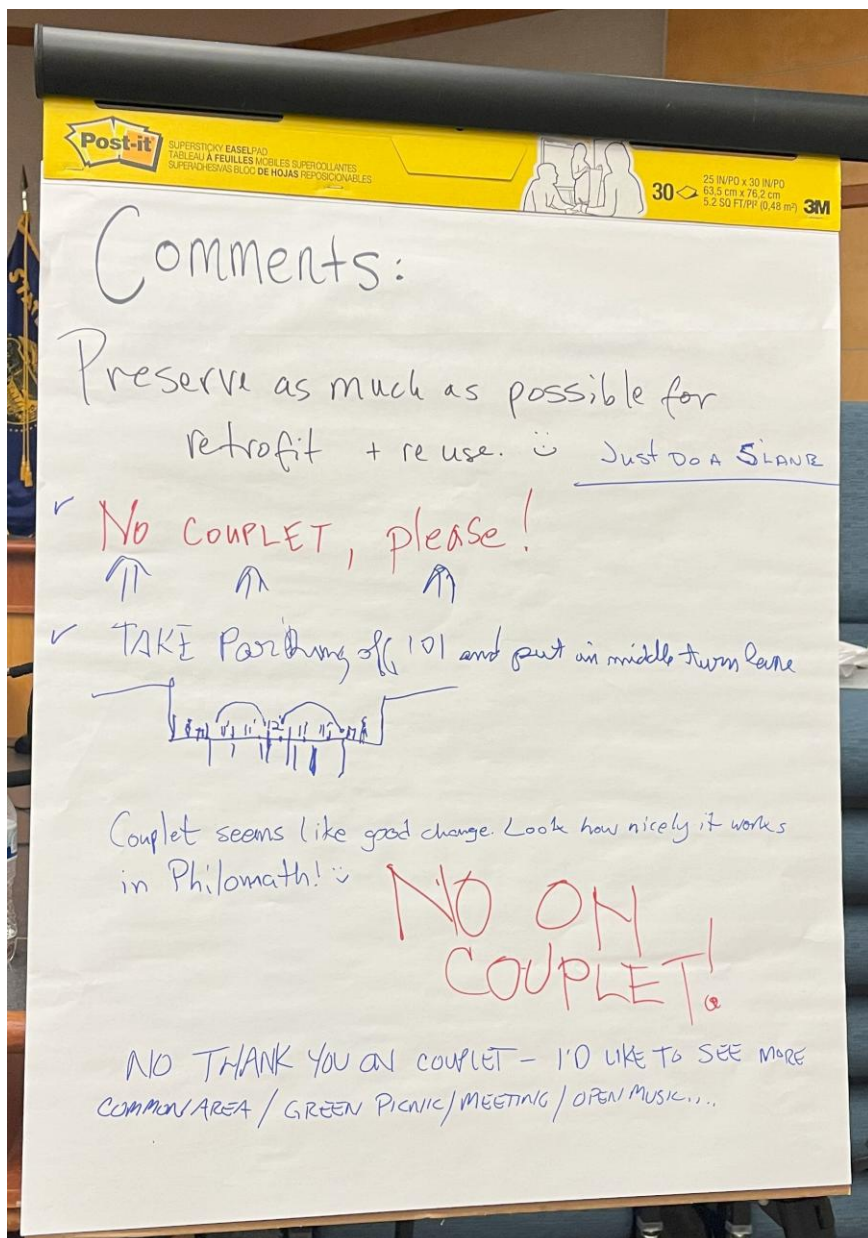 Post-it
SUPERSTICKY EASELPAD
TABLEAU À FEUILLES MOBILES SUPERCOLLANTES
SUPERADHESIVAS BLOC DE HOJAS REPOSICIONABLES
30
25 IN/PO x 30 IN/PO
63,5 cm x 76,2 cm
5.2 SQ FT/PI² (0,48 m²)
3M
Comments:
Preserve as much as possible for
retrofit + reuse.
Just Do A 5 LANE
No COUPLET, please!
TAKE Parking off 101 and put in middle turn lane
11' 11' 12' 11' 11'
Couplet seems like good change. Look how nicely it works
in Philomath!
NO ON
COUPLET!
NO THANK YOU ON COUPLET – I'D LIKE TO SEE MORE
COMMON AREA / GREEN PICNIC/MEETING/OPEN MUSIC....